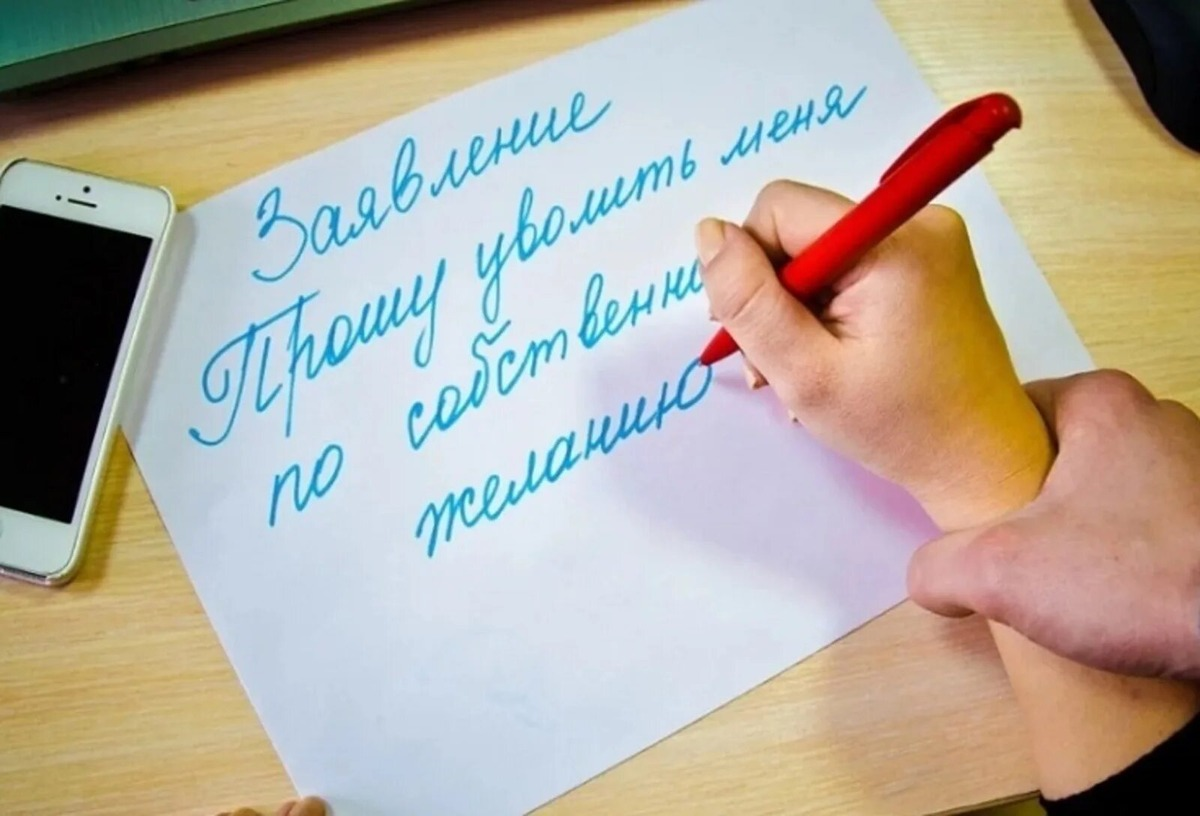 Заявление
Прошу уволить меня
по собственно
желанию